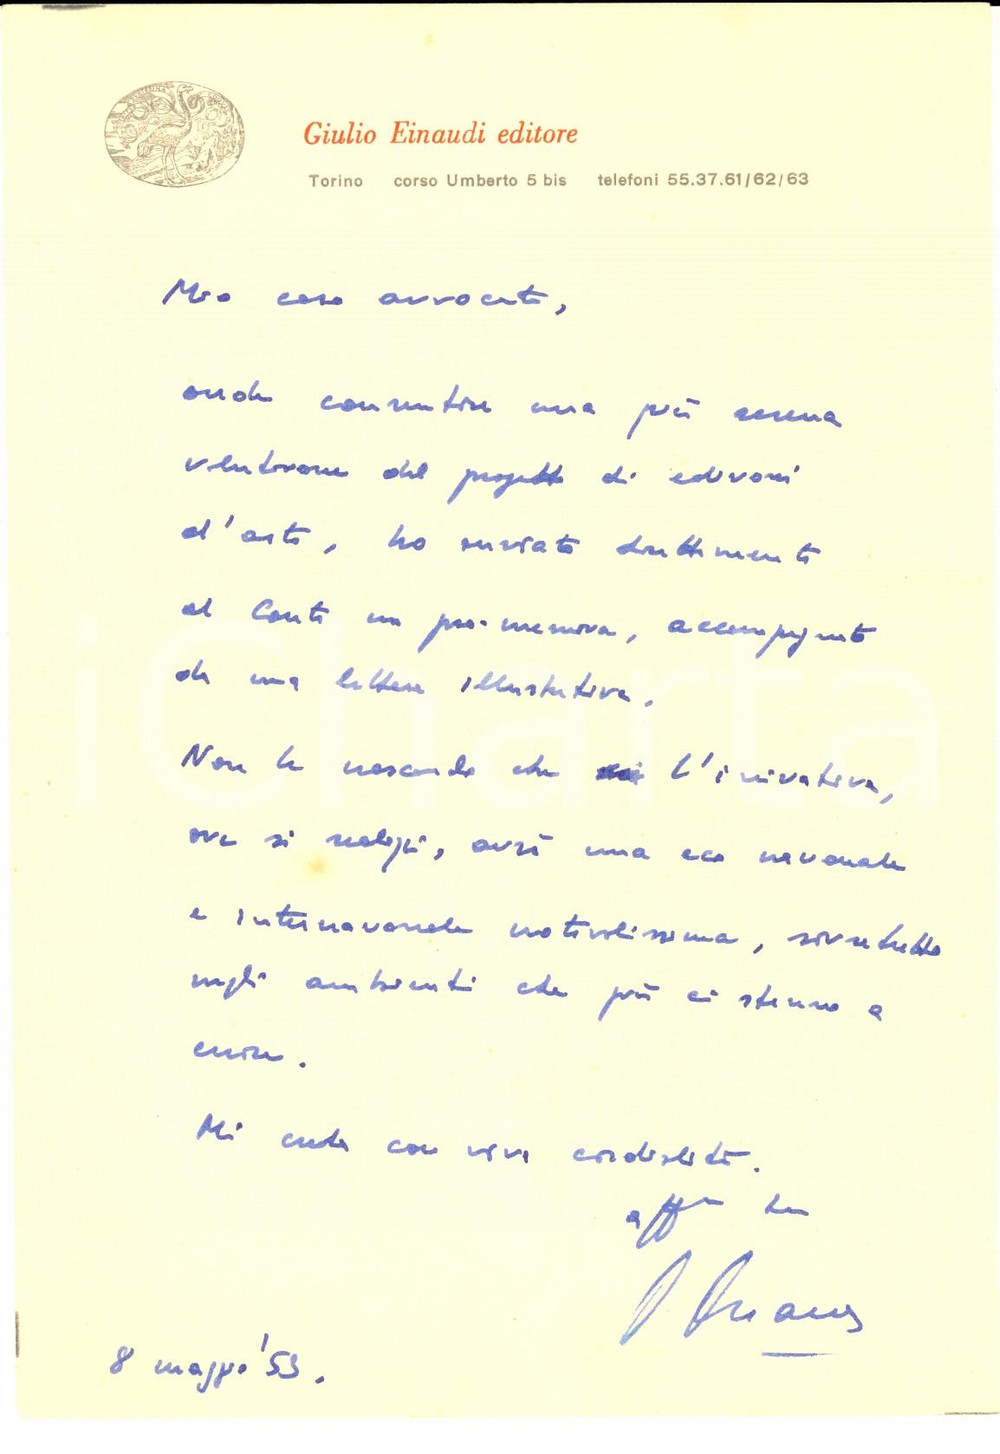 Giulio Einaudi editore
Torino corso Umberto 5 bis telefoni 55.37.61/62/63
Mio caro avvocato,
onde consentire una più serena
valutazione del progetto di edizioni
d'arte, ho inviato direttamente
al Conte un pro-memoria, accompagnato
da una lettera illustrativa.
Non le nascondo che l'iniziativa,
ove si realizzi, avrà una eco nazionale
e internazionale notevolissima, sovratutto
negli ambienti che più ci stanno a
cuore.
Mi creda con viva cordialità.
aff.mo suo
8 maggio '53.
iCharta